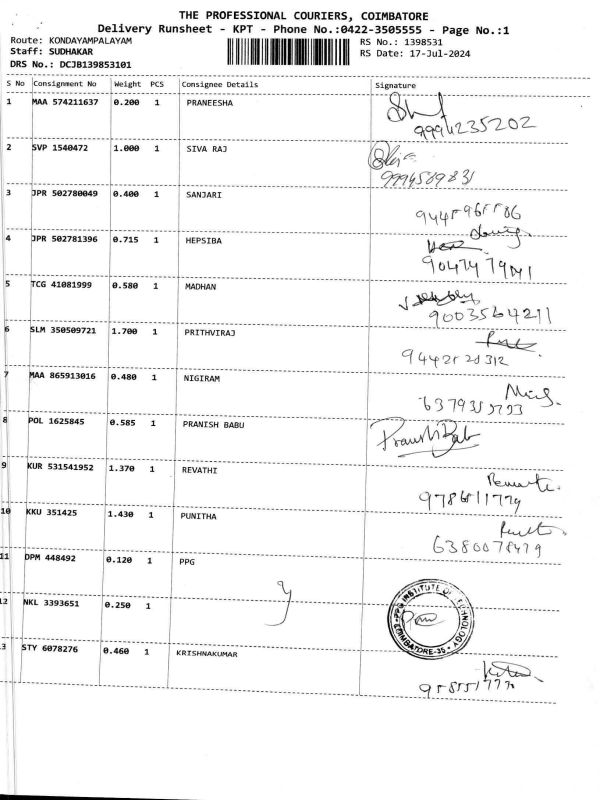 THE PROFESSIONAL COURIERS, COIMBATORE
Delivery Runsheet - KPT - Phone No.:0422-3505555 - Page No.:1
Route: KONDAYAMPALAYAM
RS No.: 1398531
Staff: SUDHAKAR
RS Date: 17-Jul-2024
DRS No.: DCJB139853101
S No Consignment No Weight PCS Consignee Details Signature
1 MAA 574211637 0.200 1 PRANEESHA
9994235202
2 SVP 1540472 1.000 1 SIVA RAJ
9994589831
3 JPR 502780049 0.400 1 SANJARI
4 JPR 502781396 0.715 1 HEPSIBA
5 TCG 41081999 0.580 1 MADHAN
9003564211
6 SLM 350509721 1.700 1 PRITHVIRAJ
7 MAA 865913016 0.480 1 NIGIRAM
8 POL 1625845 0.585 1 PRANISH BABU
9 KUR 531541952 1.370 1 REVATHI
10 KKU 351425 1.430 1 PUNITHA
6380078479
11 DPM 448492 0.120 1 PPG
PPG INSTITUTE OF TECHNOLOGY
COIMBATORE-35
12 NKL 3393651 0.250 1
3 STY 6078276 0.460 1 KRISHNAKUMAR